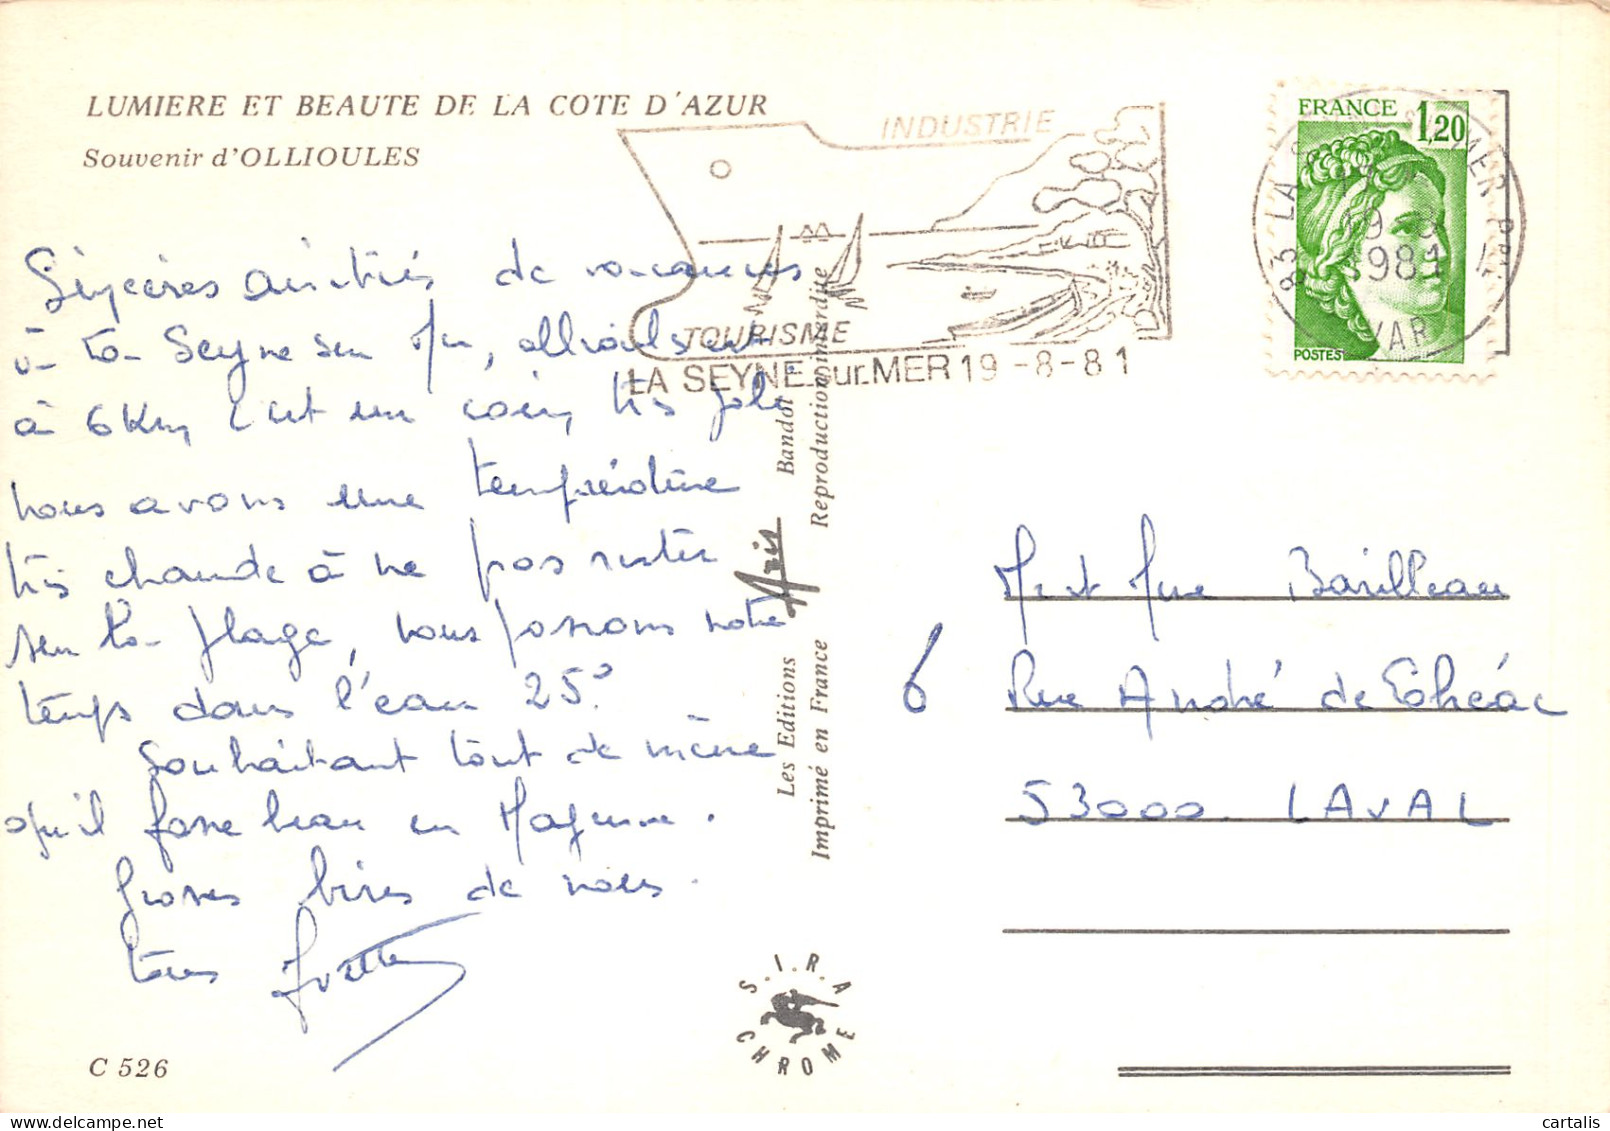 LUMIERE ET BEAUTE DE LA COTE D'AZUR
Souvenir d'OLLIOULES
INDUSTRIE
TOURISME
LA SEYNE sur MER 19-8-81
FRANCE 1,20
POSTES
83 LA SEYNE SUR MER PPAL
19-8
1981
VAR
Sincères amitiés de vacances
à la Seyne sur Mer, ollioules est
à 6 Km, c'est un coin très joli
nous avons une température
très chaude à ne pas rester
sur la plage, nous passons notre
temps dans l'eau 25°.
Souhaitant tout de même
qu'il fasse beau en Mayenne.
Grosses bises de nous
tous Yvette
C 526
Les Editions Aris Bandol
Imprimé en France Reproduction interdite
S.I.R.A
CHROME
M et Mme Barilleau
6 Rue André de Lohéac
53000. LAVAL
cartalis